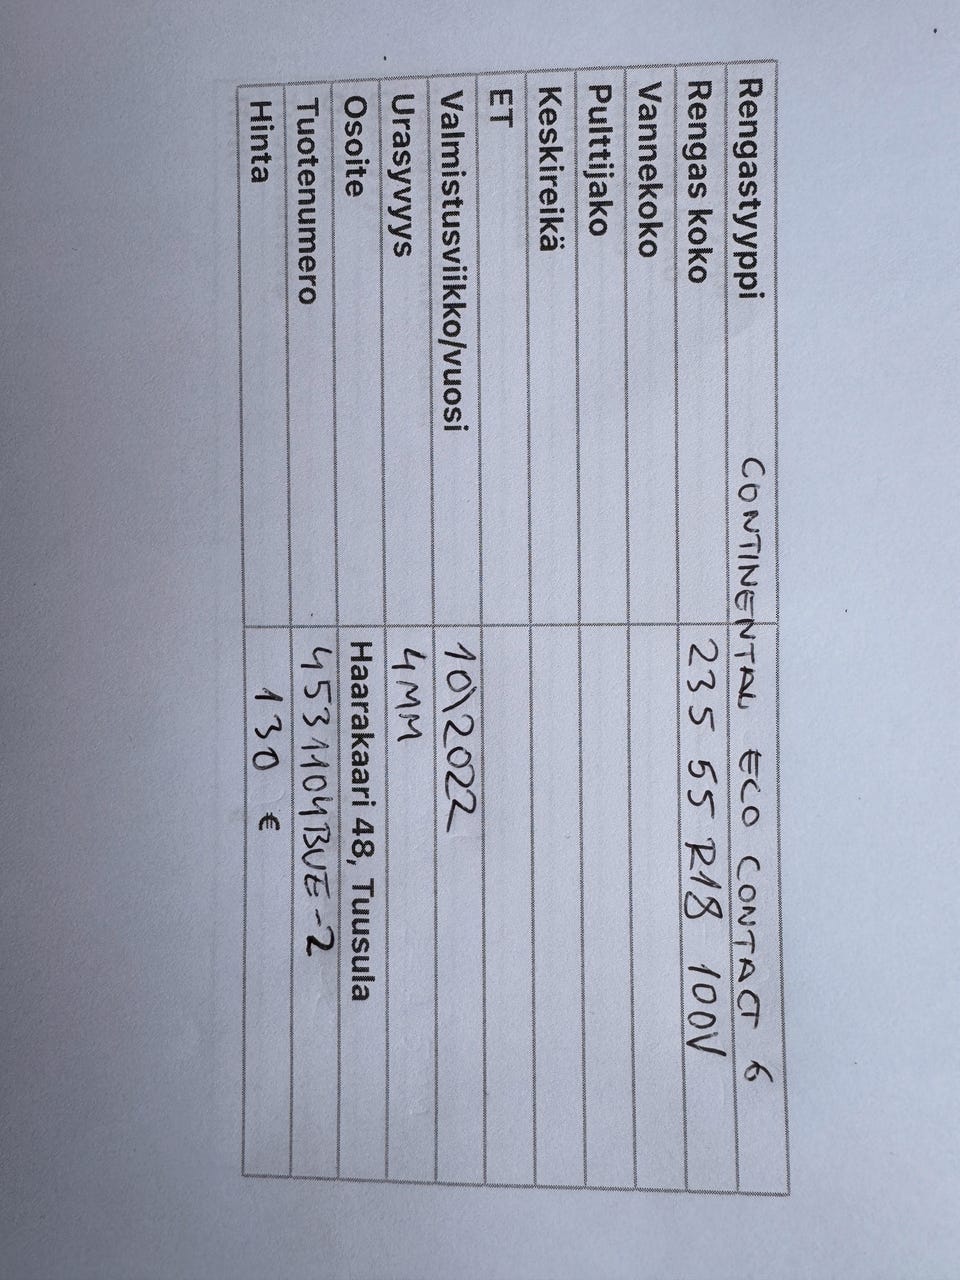 Rengastyyppi CONTINENTAL ECO CONTACT 6
Rengas koko 235 55 R18 100V
Vannekoko
Pulttijako
Keskireikä
ET
Valmistusviikko/vuosi 10\2022
Urasyvyys 4MM
Osoite Haarakaari 48, Tuusula
Tuotenumero 4531104BUE-2
Hinta 130 €